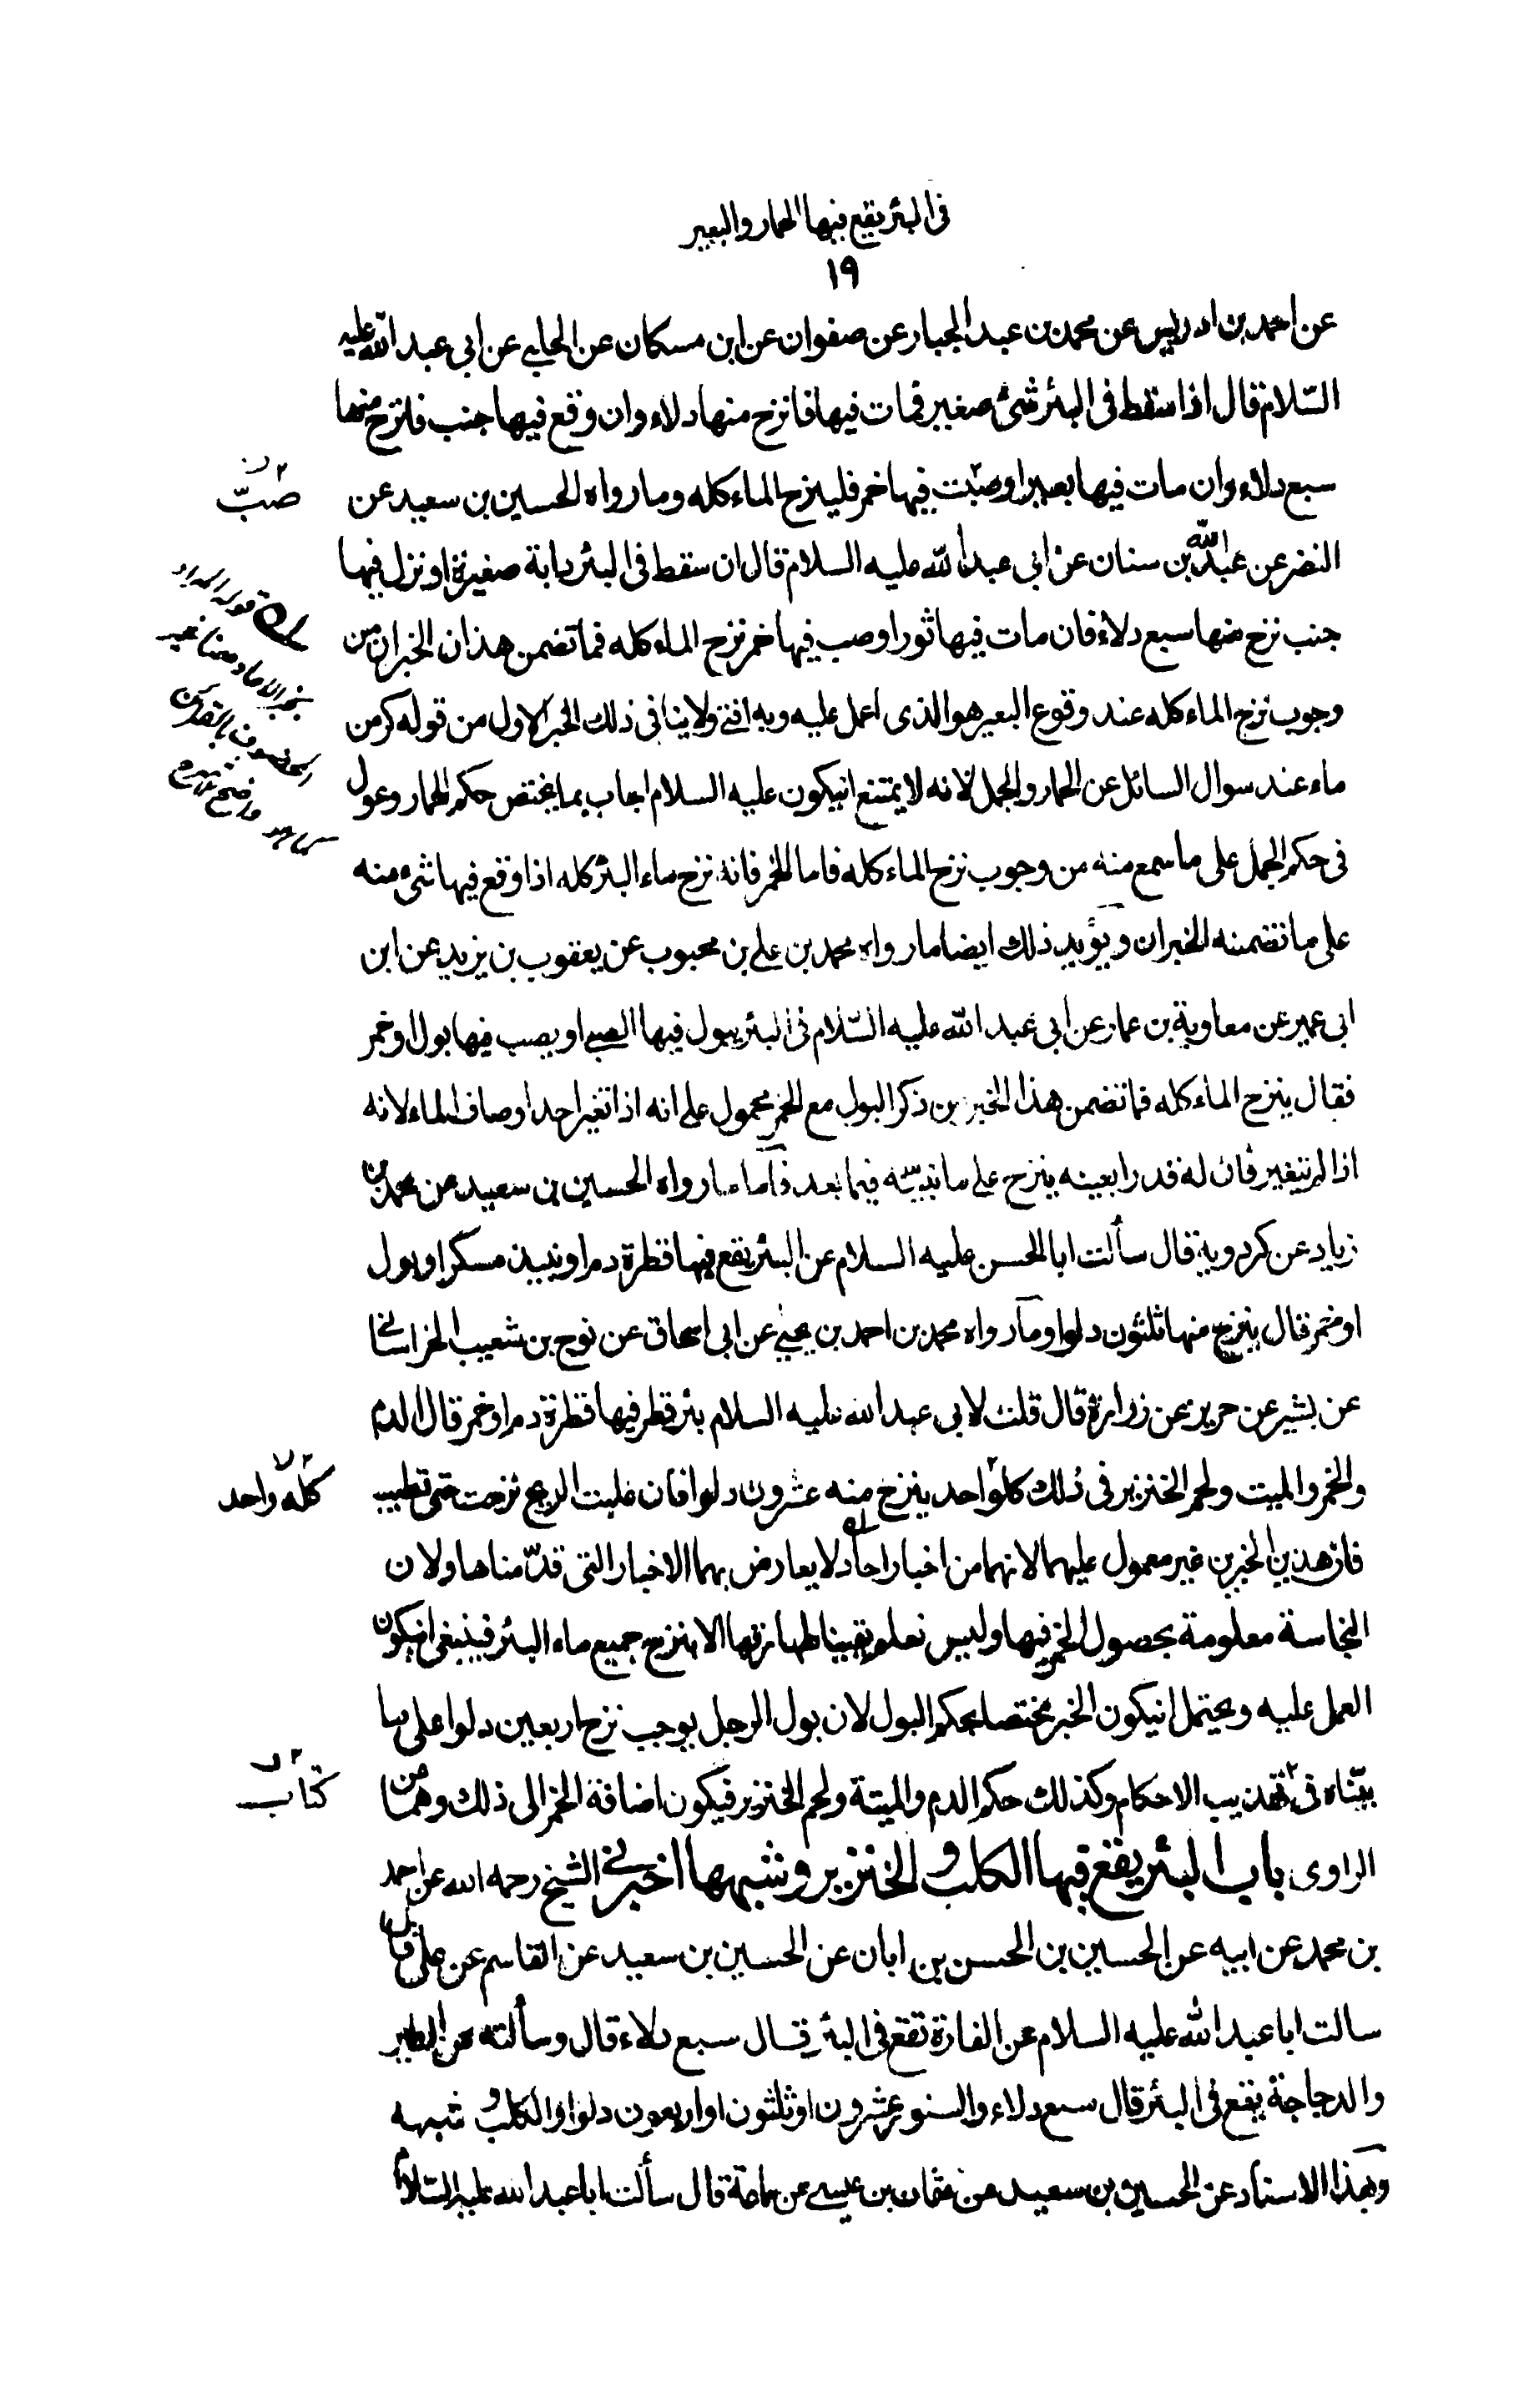 فى البئر يقع فيها الحمار والبعير
١٩
عن احمد بن ادريس عن محمد بن عبد الجبار عن صفوان عن ابن مسكان عن الحلبي عن ابى عبد الله عليه
السّلام قال اذا سقط فى البئر شئ صغير فمات فيها فانزح منها دلاء وان وقع فيها جنب فلتزح منها
سبع دلاء وان مات فيها بعير او صبّت فيها خمر فلينزح الماء كله وما رواه الحسين بن سعيد عن
صبّ
النضر عن عبد الله بن سنان عن ابى عبد الله عليه السلام قال ان سقط فى البئر دابة صغيرة او نزل فيها
جنب نزح منها سبع دلاء فان مات فيها ثور او صب فيها خمر نزح الماء كله فما تضمن هذان الخبران من
وجوب نزح الماء كله عند وقوع البعير هو الذى اعمل عليه وبه افتى ولا ينافى ذلك الخبر الاول من قوله كر من
ماء عند سوال السائل عن الحمار والجمل لانه لا يمتنع انيكون عليه السلام اجاب بما يختص حكم الحمار وعول
فى حكم الجمل على ما سمع منه من وجوب نزح الماء كله فاما الخمر فانه نزح ماء البئر كله اذا وقع فيها شىء منه
على ما تضمنه الخبران ويؤيد ذلك ايضا ما رواه محمد بن علي بن محبوب عن يعقوب بن يزيد عن ابن
ابى عمير عن معاوية بن عمار عن ابى عبد الله عليه السّلام فى البئر يبول فيها الصبي او يصب فيها بول او خمر
فقال ينزح الماء كله فما تضمن هذا الخبر من ذكر البول مع الخمر محمول على انه اذا تغير احد اوصاف الماء لانه
اذا لم يتغير فان له قدرا بعينه ينزح على ما نبيّنه فيما بعد فاما ما رواه الحسين بن سعيد عن محمد بن
زياد عن كردويه قال سألت ابا الحسن عليه السلام عن البئر يقع فيها قطرة دم او نبيذ مسكر او بول
او خمر قال ينزح منها ثلثون دلوا وما رواه محمد بن احمد بن يحيى عن ابى اسحاق عن نوح بن شعيب الخراساني
عن بشير عن حريز عن زرارة قال قلت لابى عبد الله عليه السلام بئر قطر فيها قطرة دم او خمر قال الدم
والخمر والميت ولحم الخنزير فى ذلك كله واحد ينزح منه عشرون دلوا فان غلبت الريح نزحت حتى تطيب
كلّه واحد
فان هذين الخبرين غير معمول عليهما لانهما من اخبار احاد لا يعارض بهما الاخبار التى قدّمناها ولان
النجاسة معلومة بحصول الخمر فيها وليس نعلم يقينا طهارتها الا بنزح جميع ماء البئر فينبغى انيكون
العمل عليه ويحتمل انيكون الخبر مختصا بحكم البول لان بول الرجل يوجب نزح اربعين دلوا على ما
بيّناه فى تهذيب الاحكام وكذلك حكم الدم والميتة ولحم الخنزير فيكون اضافة الخمر الى ذلك وهما من
كتاب
الراوى باب البئر يقع فيها الكلب والخنزير وشبهها اخبرني الشيخ رحمه الله عن احمد
بن محمد عن ابيه عن الحسين بن الحسن بن ابان عن الحسين بن سعيد عن القاسم عن على قال
سالت ابا عبد الله عليه السلام عن الفارة تقع فى البئر قال سبع دلاء قال وسألته عن الطير
والدجاجة يقع فى البئر قال سبع دلاء والسنور عشرون او ثلثون او اربعون دلوا والكلب وشبهه
وبهذا الاسناد عن الحسين بن سعيد عن عثمان بن عيسى عن سماعة قال سألت ابا عبد الله عليه السّلام